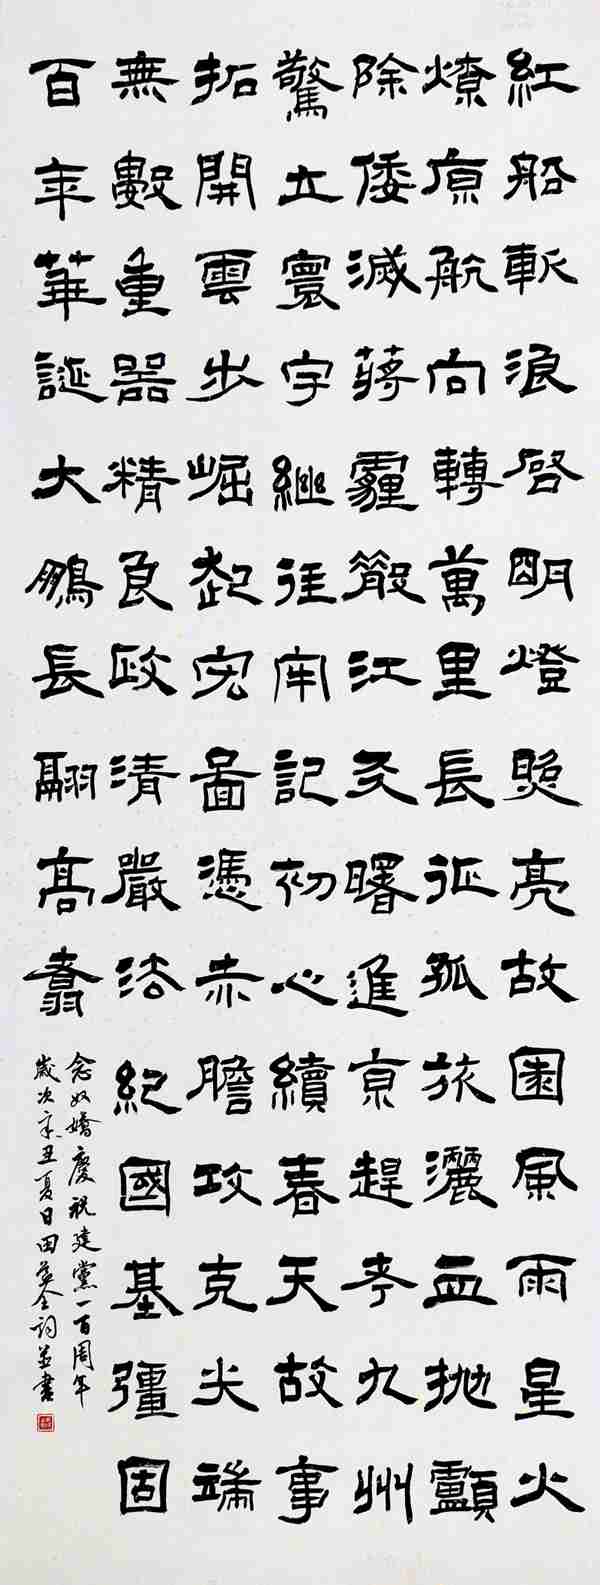 紅船斬浪啟明燈照亮故園風雨星火
燎原航向轉萬里長征孤旅灑血拋顱
除倭滅蔣霾散江天曙進京趕考九州
驚立寰宇繼往牢記初心續春天故事
拓開雲步崛起宏圖憑赤膽攻克尖端
無數重器精良政清嚴法紀國基彊固
百年華誕大鵬長翮高翥
念奴嬌慶祝建黨一百周年
歲次辛丑夏日田英全詞並書